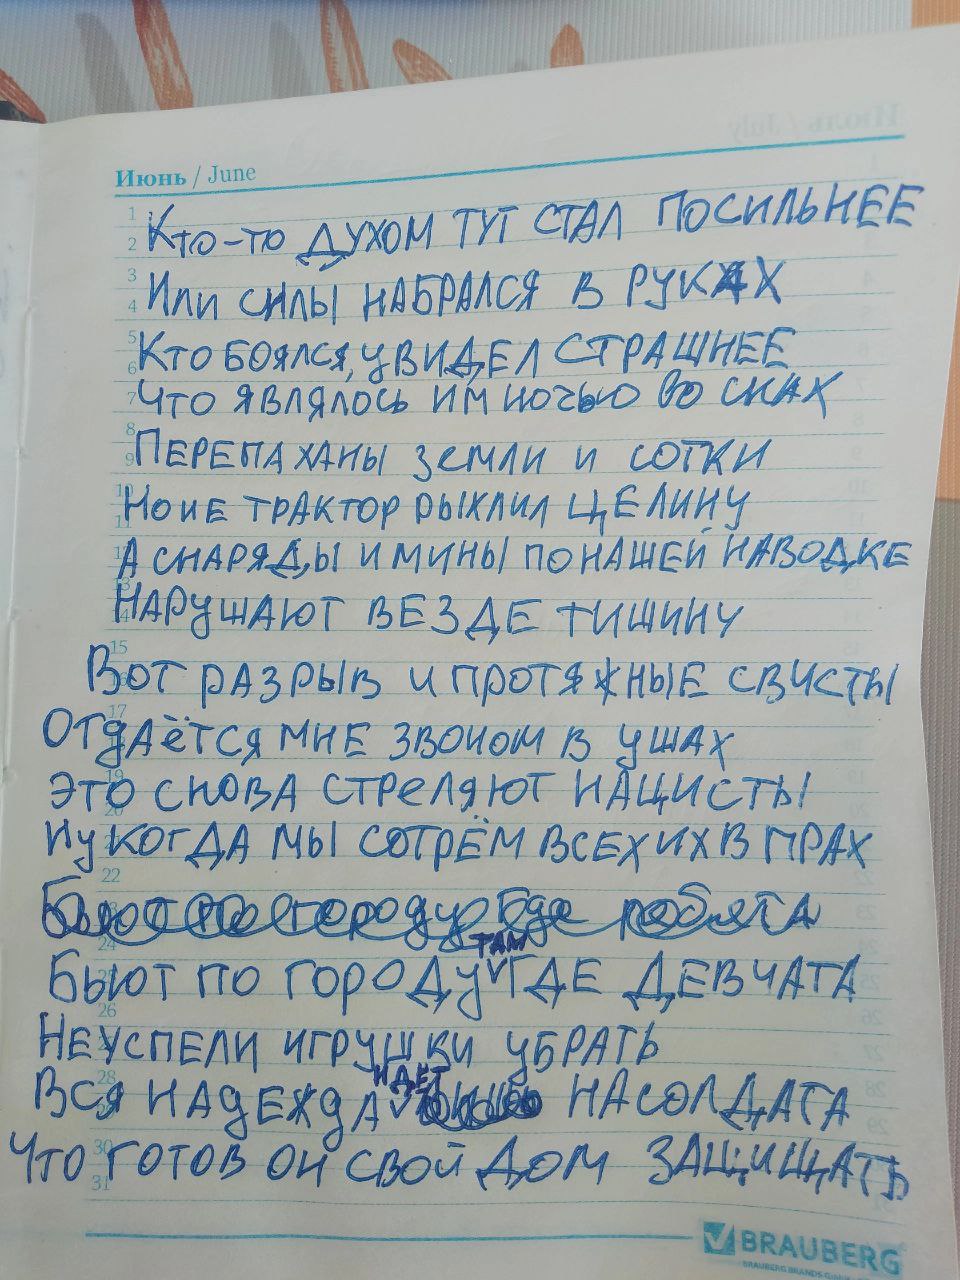 Июнь / June
Кто-то духом тут стал посильнее
Или силы набрался в руках
Кто боялся, увидел страшнее
Что являлось им ночью во снах
Перепаханы земли и сотки
Но не трактор рыхлил целину
А снаряды и мины по нашей наводке
Нарушают везде тишину
Вот разрыв и протяжные свисты
Отдаётся мне звоном в ушах
Это снова стреляют нацисты
Ну когда мы сотрём всех их в прах
Бьют по городу где ребята
Бьют по городу там где девчата
Не успели игрушки убрать
Вся надежда идет на солдата
Что готов он свой дом защищать
BRAUBERG